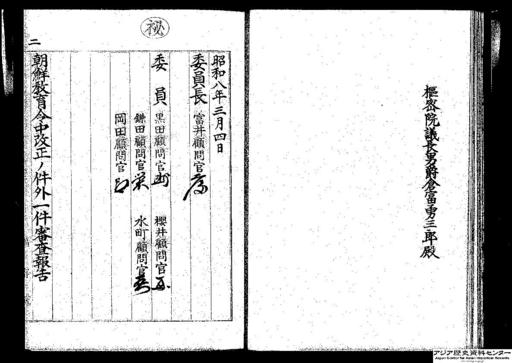 樞密院議長男爵倉富勇三郎殿
㊙
昭和八年三月四日
委員長 富井顧問官
委員 黒田顧問官 櫻井顧問官
鎌田顧問官 水町顧問官
岡田顧問官
朝鮮教育令中改正ノ件外一件審査報告
二
アジア歴史資料センター
Japan Center for Asian Historical Records